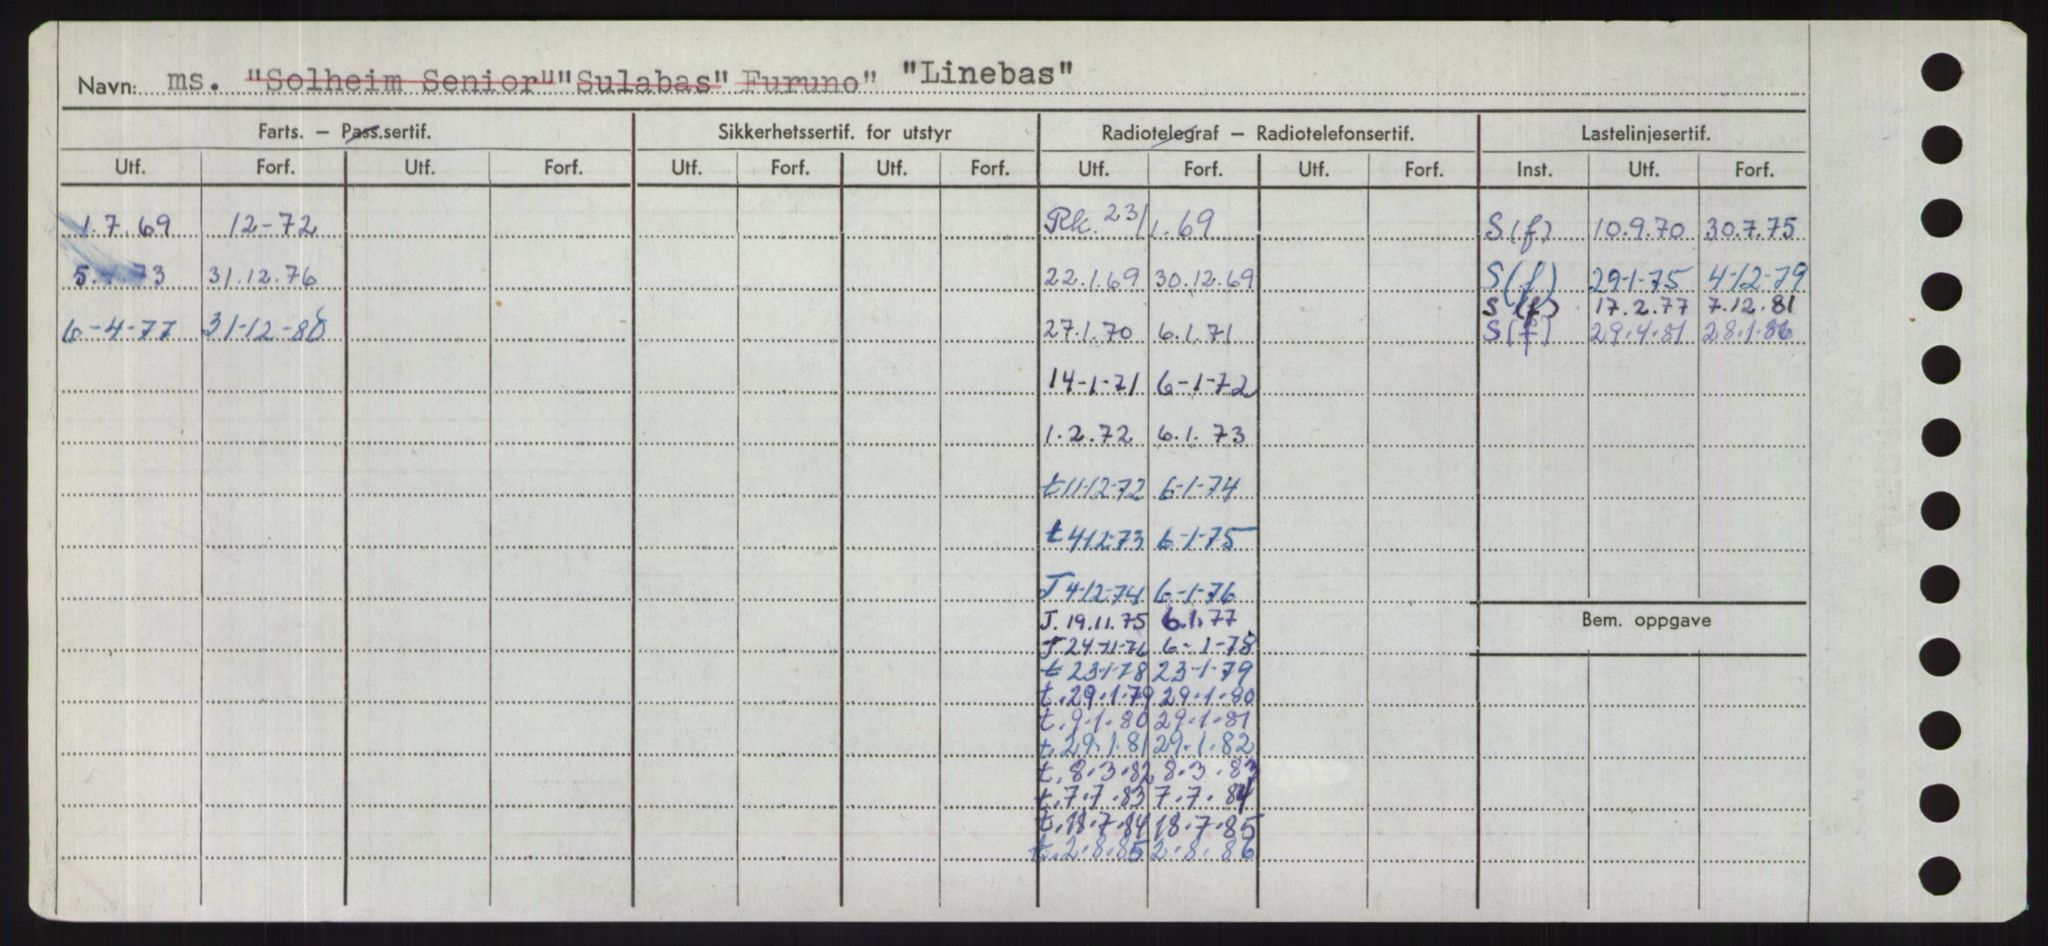 Navn: ms. "Solheim Senior" "Sulabas" Furuno" "Linebas"
Farts. — Pass.sertif. Sikkerhetssertif. for utstyr Radiotelegraf — Radiotelefonsertif. Lastelinjesertif.
Utf. Forf. Utf. Forf. Utf. Forf. Utf. Forf. Utf. Forf. Utf. Forf. Inst. Utf. Forf.
1.7.69 12-72 Rk. 23/1.69 S(f) 10.9.70 30.7.75
5. 73 31.12.76 22.1.69 30.12.69 S(f) 29-1-75 4-12-79
S(f) 17.2.77 7.12.81
6-4-77 31-12-80 27.1.70 6.1.71 S(f) 29.4.81 28.1.86
14-1-71 6-1-72
1.2.72 6.1.73
t 11-12-72 6-1-74
t 4-12-73 6-1-75
T 4-12-74 6-1-76
T. 19.11.75 6.1.77
T 24-11-76 6-1-78
t 23-1-78 23-1-79
t. 29.1.79 29.1.80
t. 9.1.80 29.1.81
t. 29.1.81 29.1.82
t. 8.3.82 8.3.83
t. 7.7.83 7.7.84
t. 18.7.84 18.7.85
t. 2.8.85 2.8.86
Bem. oppgave